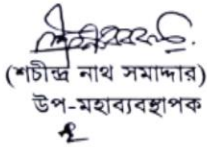 (শচীন্দ্র নাথ সমাদ্দার)
উপ-মহাব্যবস্থাপক